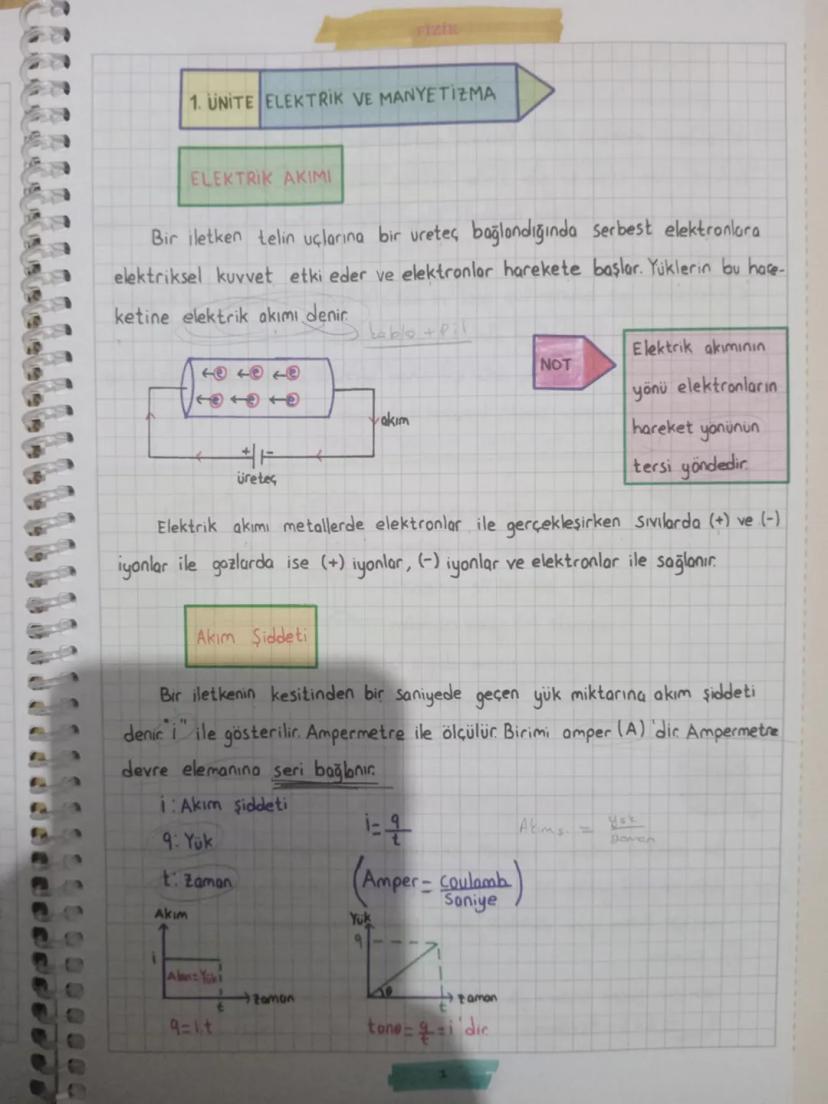 FİZİK
1. ÜNİTE ELEKTRİK VE MANYETİZMA
ELEKTRİK AKIMI
Bir iletken telin uçlarına bir üreteç bağlandığında serbest elektronlara
elektriksel kuvvet etki eder ve elektronlar harekete başlar. Yüklerin bu hare-
ketine elektrik akımı denir.
kablo + pil
e e e
e e e
akım
+ -
üreteç
NOT
Elektrik akımının
yönü elektronların
hareket yönünün
tersi yöndedir.
Elektrik akımı metallerde elektronlar ile gerçekleşirken sıvılarda (+) ve (-)
iyonlar ile gazlarda ise (+) iyonlar, (-) iyonlar ve elektronlar ile sağlanır.
Akım Şiddeti
Bir iletkenin kesitinden bir saniyede geçen yük miktarına akım şiddeti
denir. "i" ile gösterilir. Ampermetre ile ölçülür. Birimi amper (A)'dir. Ampermetre
devre elemanına seri bağlanır.
i: Akım Şiddeti
q: Yük
t: Zaman
i = q/t
Akım ş. = yük/zaman
(Amper = coulomb/Saniye)
Akım
i
Alan = Yük
t
zaman
q = i.t
Yük
q
θ
t
zaman
tanθ = q/t = i'dir.
1